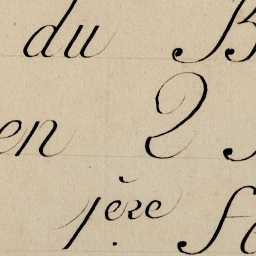 du B
en 2
1ère